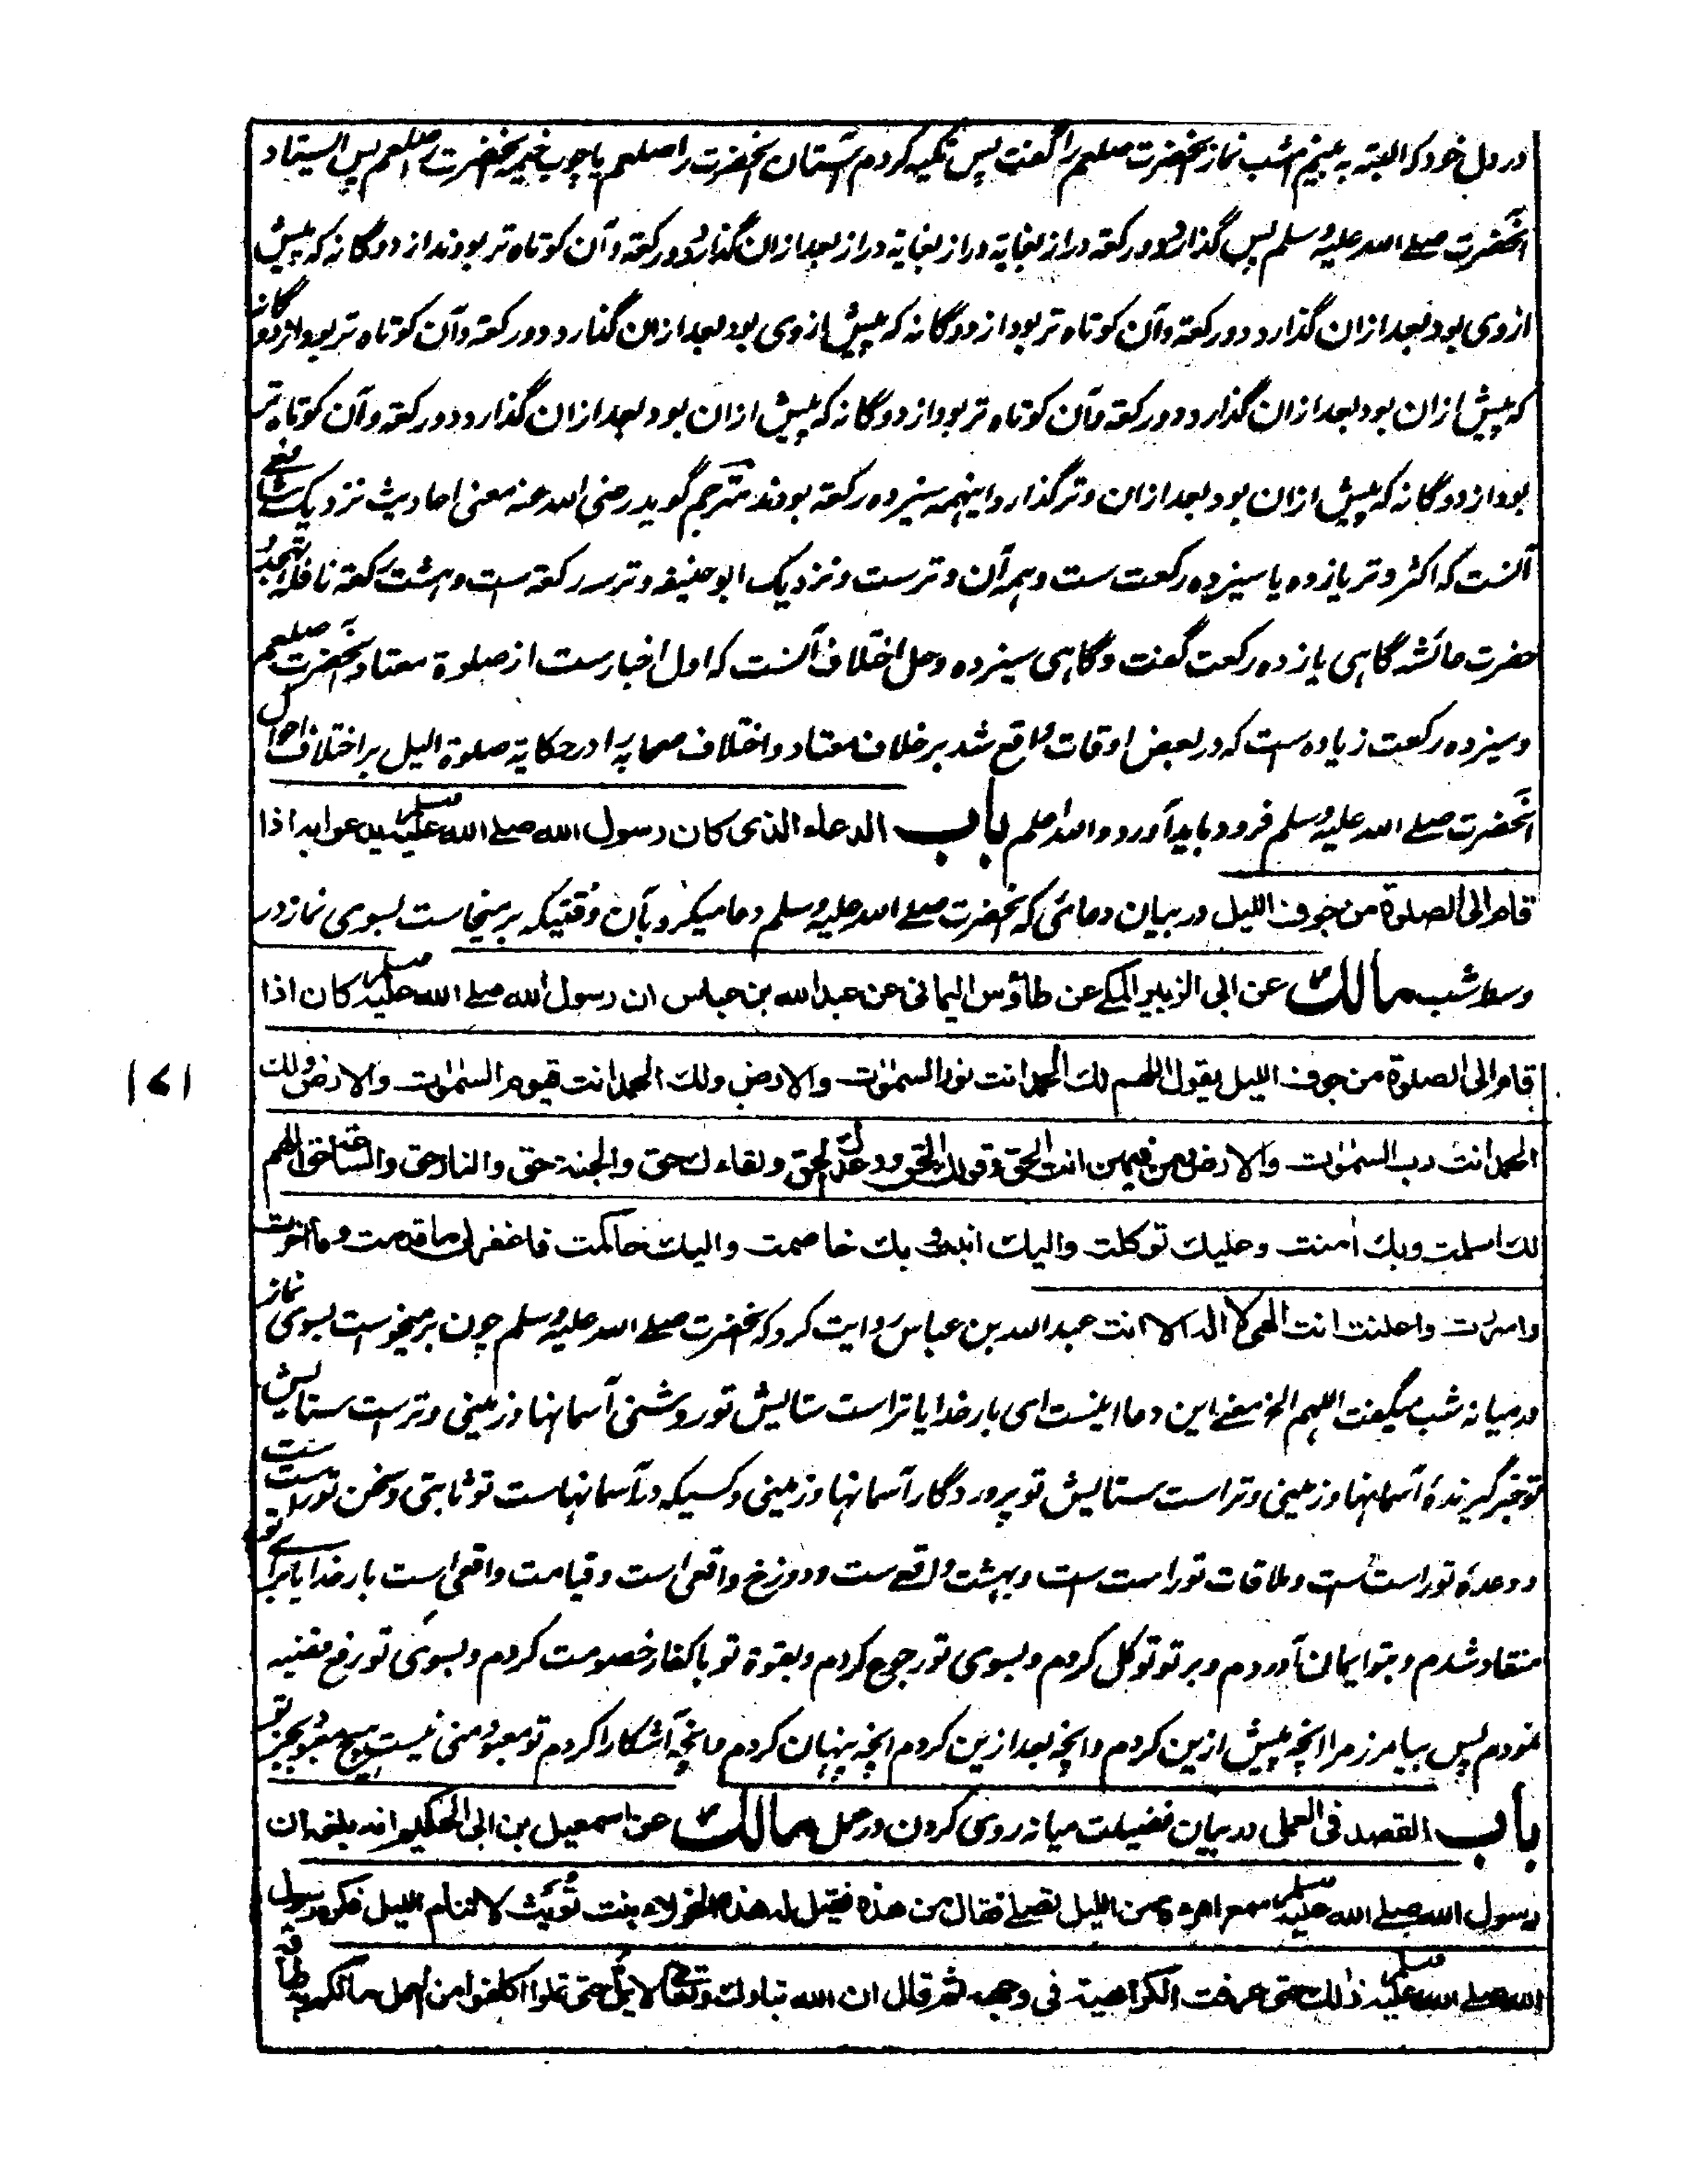 در دل خود که البته به بینیم امشب نماز آنحضرت صلعم را گفت پس تکیه کردم آستان آنحضرت را صلعم یا چوب خیمه آنحضرت را صلعم پس ایستاد
آنحضرت صلے الله علیه وسلم پس گذارد دو رکعة دراز بغایة دراز بغایة دراز بعد ازان گذارد دو رکعة و آن کوتاه تر بودند از دوگانه که پیش
از وی بود بعد ازان گذارد دو رکعة و آن کوتاه تر بود از دوگانه که پیش از وی بود بعد ازان گذارد دو رکعة و آن کوتاه تر بود از دوگانه
که پیش ازان بود بعد ازان گذارد دو رکعة و آن کوتاه تر بود از دوگانه که پیش ازان بود بعد ازان گذارد دو رکعة و آن کوتاه تر
بود از دوگانه که پیش ازان بود بعد ازان وتر گذارد و اینهمه سیزده رکعة بودند مترجم گوید رضی الله عنه معنی احادیث نزدیک شافعے
آنست که اکثر وتر یازده یا سیزده رکعت ست و همه آن وترست و نزدیک ابو حنیفه وتر سه رکعة ست و هشت رکعة نافله تهجد
حضرت عائشه گاهی یازده رکعت گفت و گاهی سیزده وحل اختلاف آنست که اول اخبارست از صلوة معتاد آنحضرت صلعم
و سیزده رکعت زیاده ست که در بعض اوقات واقع شد بر خلاف معتاد و اختلاف صحابه را در حکایة صلوة الیل بر اختلاف احوال
آنحضرت صلے الله علیه وسلم فرود باید آورد والله اعلم باب الدعاء الذی کان رسول الله صلے الله علیه وسلم یدعوا به اذا
قام الی الصلوة من جوف اللیل در بیان دعائی که آنحضرت صلے الله علیه وسلم دعا میکرد بآن وقتیکه برمیخاست بسوی نماز در
وسط شب مالك عن ابی الزبیر المکے عن طاؤس الیمانی عن عبدالله بن عباس ان رسول الله صلے الله علیه وسلم کان اذا
قام الی الصلوة من جوف اللیل یقول اللهم لك الحمد انت نور السمٰوٰت والارض ولك الحمد انت قیوم السمٰوٰت والارض ولك
۱۷۱
الحمد انت رب السمٰوٰت والارض ومن فیهن انت الحق وقولك الحق ووعدك الحق ولقاءك حق والجنة حق والنار حق والساعة حق اللهم
لك اسلمت وبك اٰمنت وعلیك توکلت والیك انبت وبك خاصمت والیك حاکمت فاغفرلی ما قدمت وما اخرت
واسررت واعلنت انت الٰهی لا اله الا انت عبدالله بن عباس روایت کرد که آنحضرت صلے الله علیه وسلم چون برمیخوست بسوی نماز
در میانه شب میگفت اللهم الخ معنے این دعا اینست ای بار خدایا تراست ستایش تو روشنی آسمانها و زمینی و تراست ستایش
تو خبر گیرندۀ آسمانها و زمینی و تراست ستایش تو پروردگار آسمانها و زمینی و کسیکه در آسمانهاست تو ثابتی و سخن تو راست ست
و وعدۀ تو راست ست و ملاقات تو راست ست و بهشت واقعے ست و دوزخ واقعی است و قیامت واقعی است بار خدایا برای تو
منقاد شدم و بتو ایمان آوردم و بر تو توکل کردم و بسوی تو رجوع کردم و بقوة تو با کفار خصومت کردم و بسوی تو رفع مقنیه
نمودم پس بیامرز مرا انچه پیش ازین کردم و انچه بعد ازین کردم انچه پنهان کردم و انچه آشکارا کردم تو معبود منی نیست هیچ معبود بجز تو
باب القصد فی العمل در بیان فضیلت میانه روی کردن در عمل مالك عن اسمعیل بن ابی الحکیم انه بلغه ان
رسول الله صلے الله علیه وسلم سمع امرءة من اللیل تصلے فقال من هذه فقیل له هذه الحولاء بنت تُوَیْت لا تنام اللیل فکره رسول
الله صلے الله علیه وسلم ذٰلك حتی عرفت الکراهیة فی وجهه ثم قال ان الله تبارك وتعالی لا یمل حتی تملوا اکلفوا من العمل ما لکم به طاقة